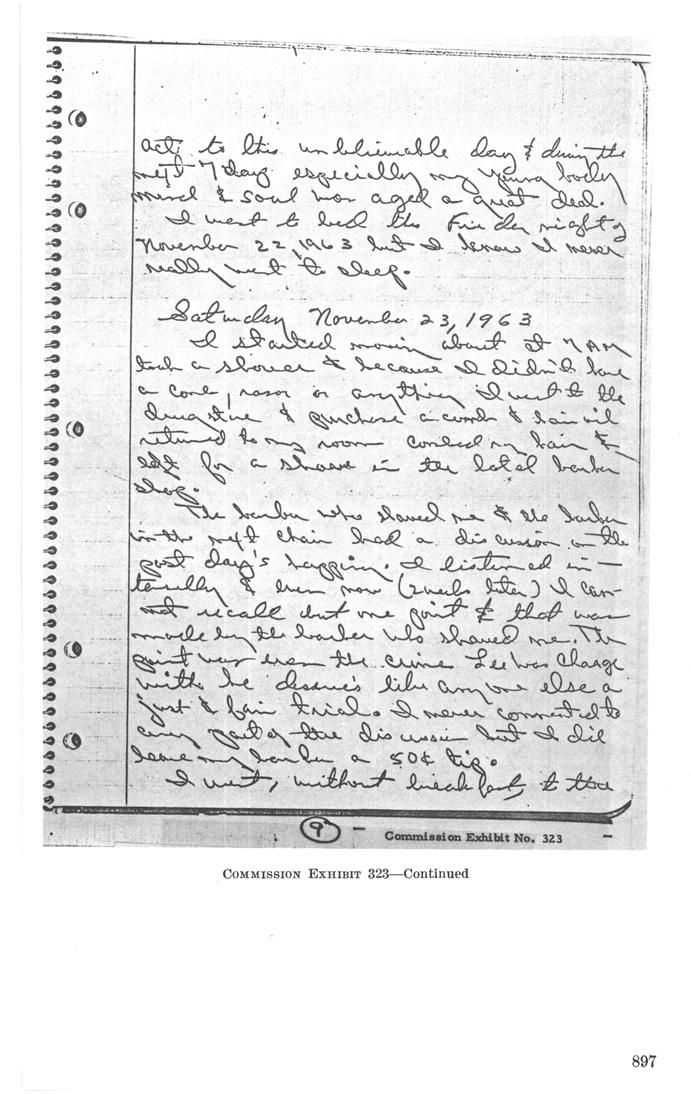 act to this unbelievable day & during the
next 7 days especially my young body
mind & soul was aged a great deal.
I went to bed this Friday night of
November 22, 1963 but I know I never
really went to sleep.
Saturday November 23, 1963
I started moving about at 7 AM
took a shower & because I didn't have
a razor or anything I went to the
drugstore & purchase a comb & hair oil
returned to my room combed my hair &
left for a shave in the hotel barber
shop.
The barber who shaved me & the barber
in the next chair had a discussion on the
past day's happening. I listened in-
& even now (2 weeks later) I can-
not recall but one point & that was
made by the barber who shaved me. The
point was even the crime Lee was charge
with he deserves like anyone else a
just & fair trial. I never commented to
any part of the discussion but I did
leave my barber a 50¢ tip.
I went, without breakfast, to the
9 -
Commission Exhibit No. 323 -
COMMISSION EXHIBIT 323—Continued
897